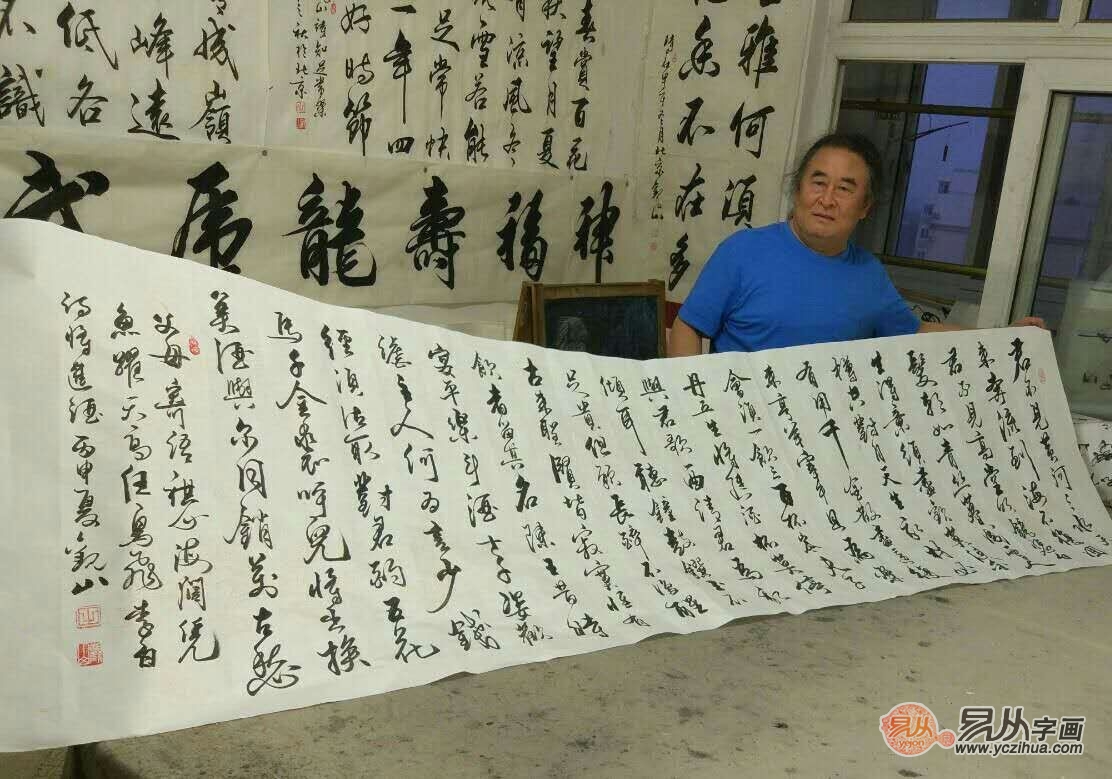 雅何須
香不在多
春賞百花
秋望月夏
有涼風冬
雪若能
足常快
一年四
好時節
秋於北京
成嶺
峰遠
低各
不識
神福壽龍虎武
君不見黃河之水天上
來奔流到海不復回
君不見高堂明鏡悲白
髮朝如青絲暮成雪人
生得意須盡歡莫使金
樽空對月天生我材必
有用千金散盡還復
來烹羊宰牛且為樂
會須一飲三百杯岑夫子
丹丘生將進酒杯莫停
與君歌一曲請君為我
傾耳聽鐘鼓饌玉不
足貴但願長醉不願醒
古來聖賢皆寂寞惟有
飲者留其名陳王昔時
宴平樂斗酒十千恣歡
謔主人何為言少錢
徑須沽取對君酌五花
馬千金裘呼兒將出換
美酒與爾同銷萬古愁
父母寄語祺心海闊憑
魚躍天高任鳥飛李白
詩將進酒丙申夏觀山
易从字画
www.yczihua.com